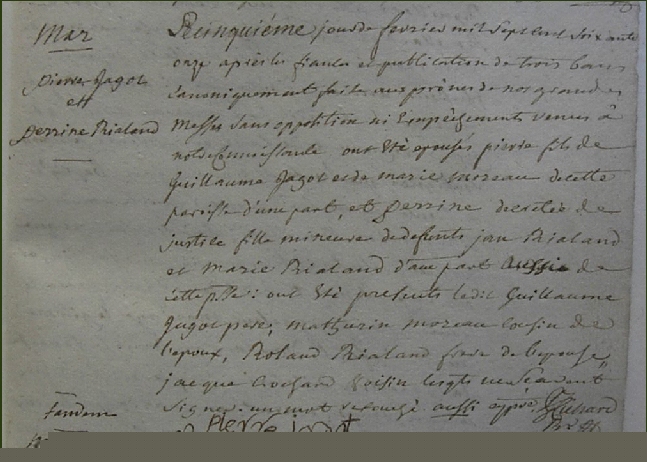 Mar
pierre Jagot
et
perrine Rialand
Le cinquiéme jour de fevrier mil sept cent soixante
onze après les fiancs et publication de trois bans
canoniquement faite aux prônes de nos grandes
messes sans opposition ni empêchement venus à
notre connoissance ont été epousés pierre fils de
Guillaume Jagot et de marie moreau de cette
paroisse d'une part, et perrine decretée de
justice fille mineure de defunts jan Rialand
et Marie Rialand d'autre part aussi de
cette psse: ont été presents ledit Guillaume
Jagot pere, mathurin moreau cousin de
l'epoux, Roland Rialand frere de l'epouse,
jacque Crochard voisin lesqts ne scavent
signer. un mot retouché aussi appvé
Fandeur
pierre